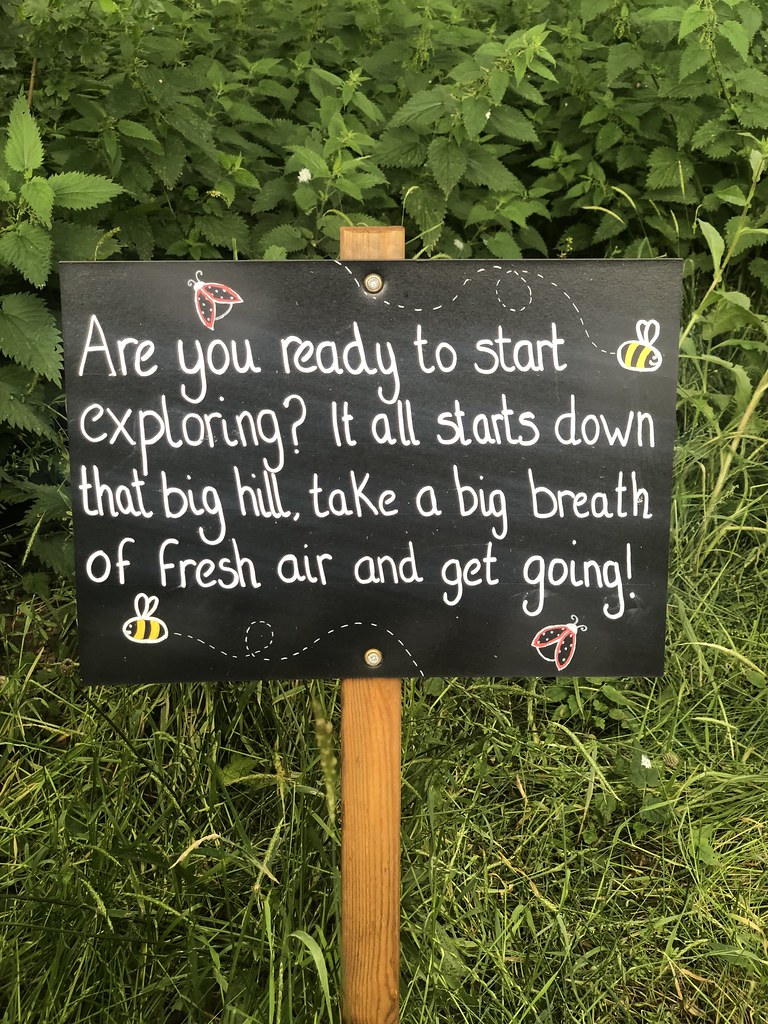 Are you ready to start
exploring? It all starts down
that big hill, take a big breath
of fresh air and get going!